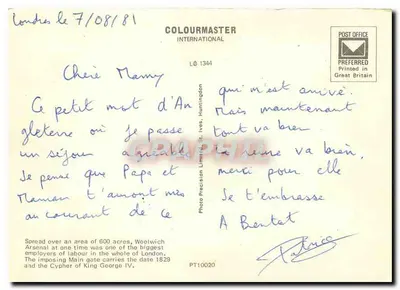 Londres le 7/08/81
COLOURMASTER
INTERNATIONAL
LO 1344
POST OFFICE
PREFERRED
Printed in
Great Britain
Chère Mamy
Ce petit mot d'An
gleterre où je passe
un séjour agréable
Je pense que Papa et
Maman t'auront mis
au courant de ce
Photo Precision Limited, St. Ives, Huntingdon
qui m'est arrivé.
Mais maintenant
tout va bien
la reine va bien,
merci pour elle
Je t'embrasse
A Bientot
Patrice
Spread over an area of 600 acres, Woolwich
Arsenal at one time was one of the biggest
employers of labour in the whole of London.
The imposing Main gate carries the date 1829
and the Cypher of King George IV.
PT10020